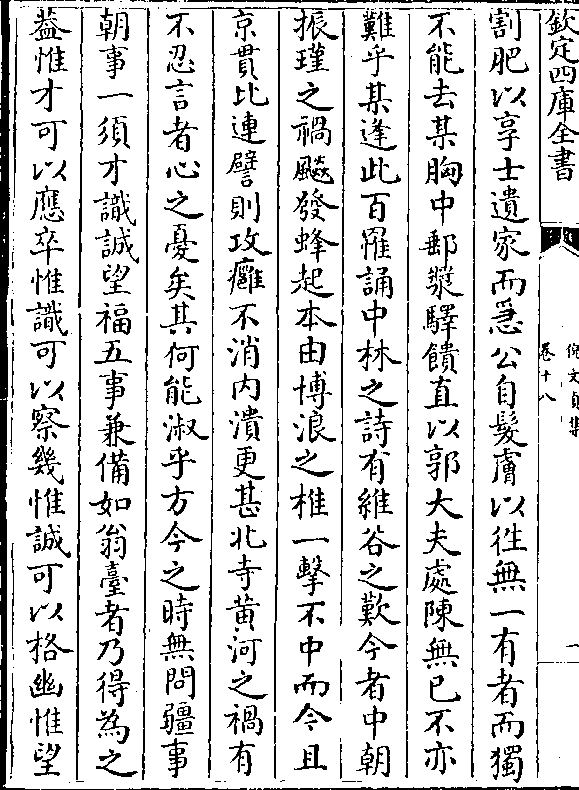 欽定四庫全書
倪文貞集
卷十八
一
割肥以享士遺家而急公自髮膚以徃無一有者而獨
不能去某胸中郵漿驛饋直以郭大夫處陳無已不亦
難乎某逢此百罹誦中林之詩有維谷之歎今者中朝
振瑾之禍飈發蜂起本由博浪之椎一擊不中而今且
京貫比連譬則攻癰不消内潰更甚北寺黄河之禍有
不忍言者心之憂矣其何能淑乎方今之時無問疆事
朝事一須才識誠望福五事兼備如翁臺者乃得為之
葢惟才可以應卒惟識可以察幾惟誠可以格幽惟望